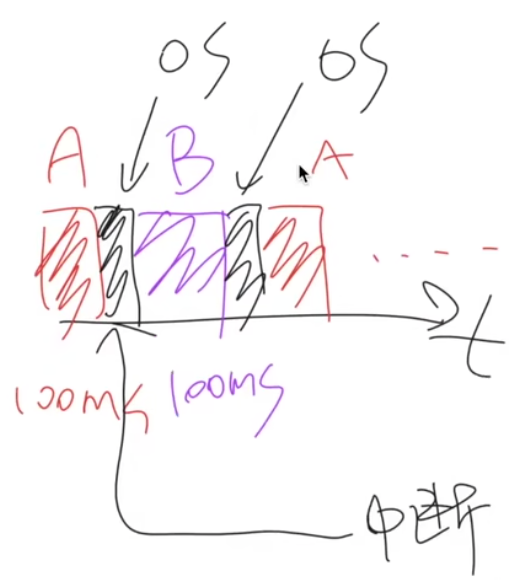 OS OS
A B A
t
100ms 100ms
中断